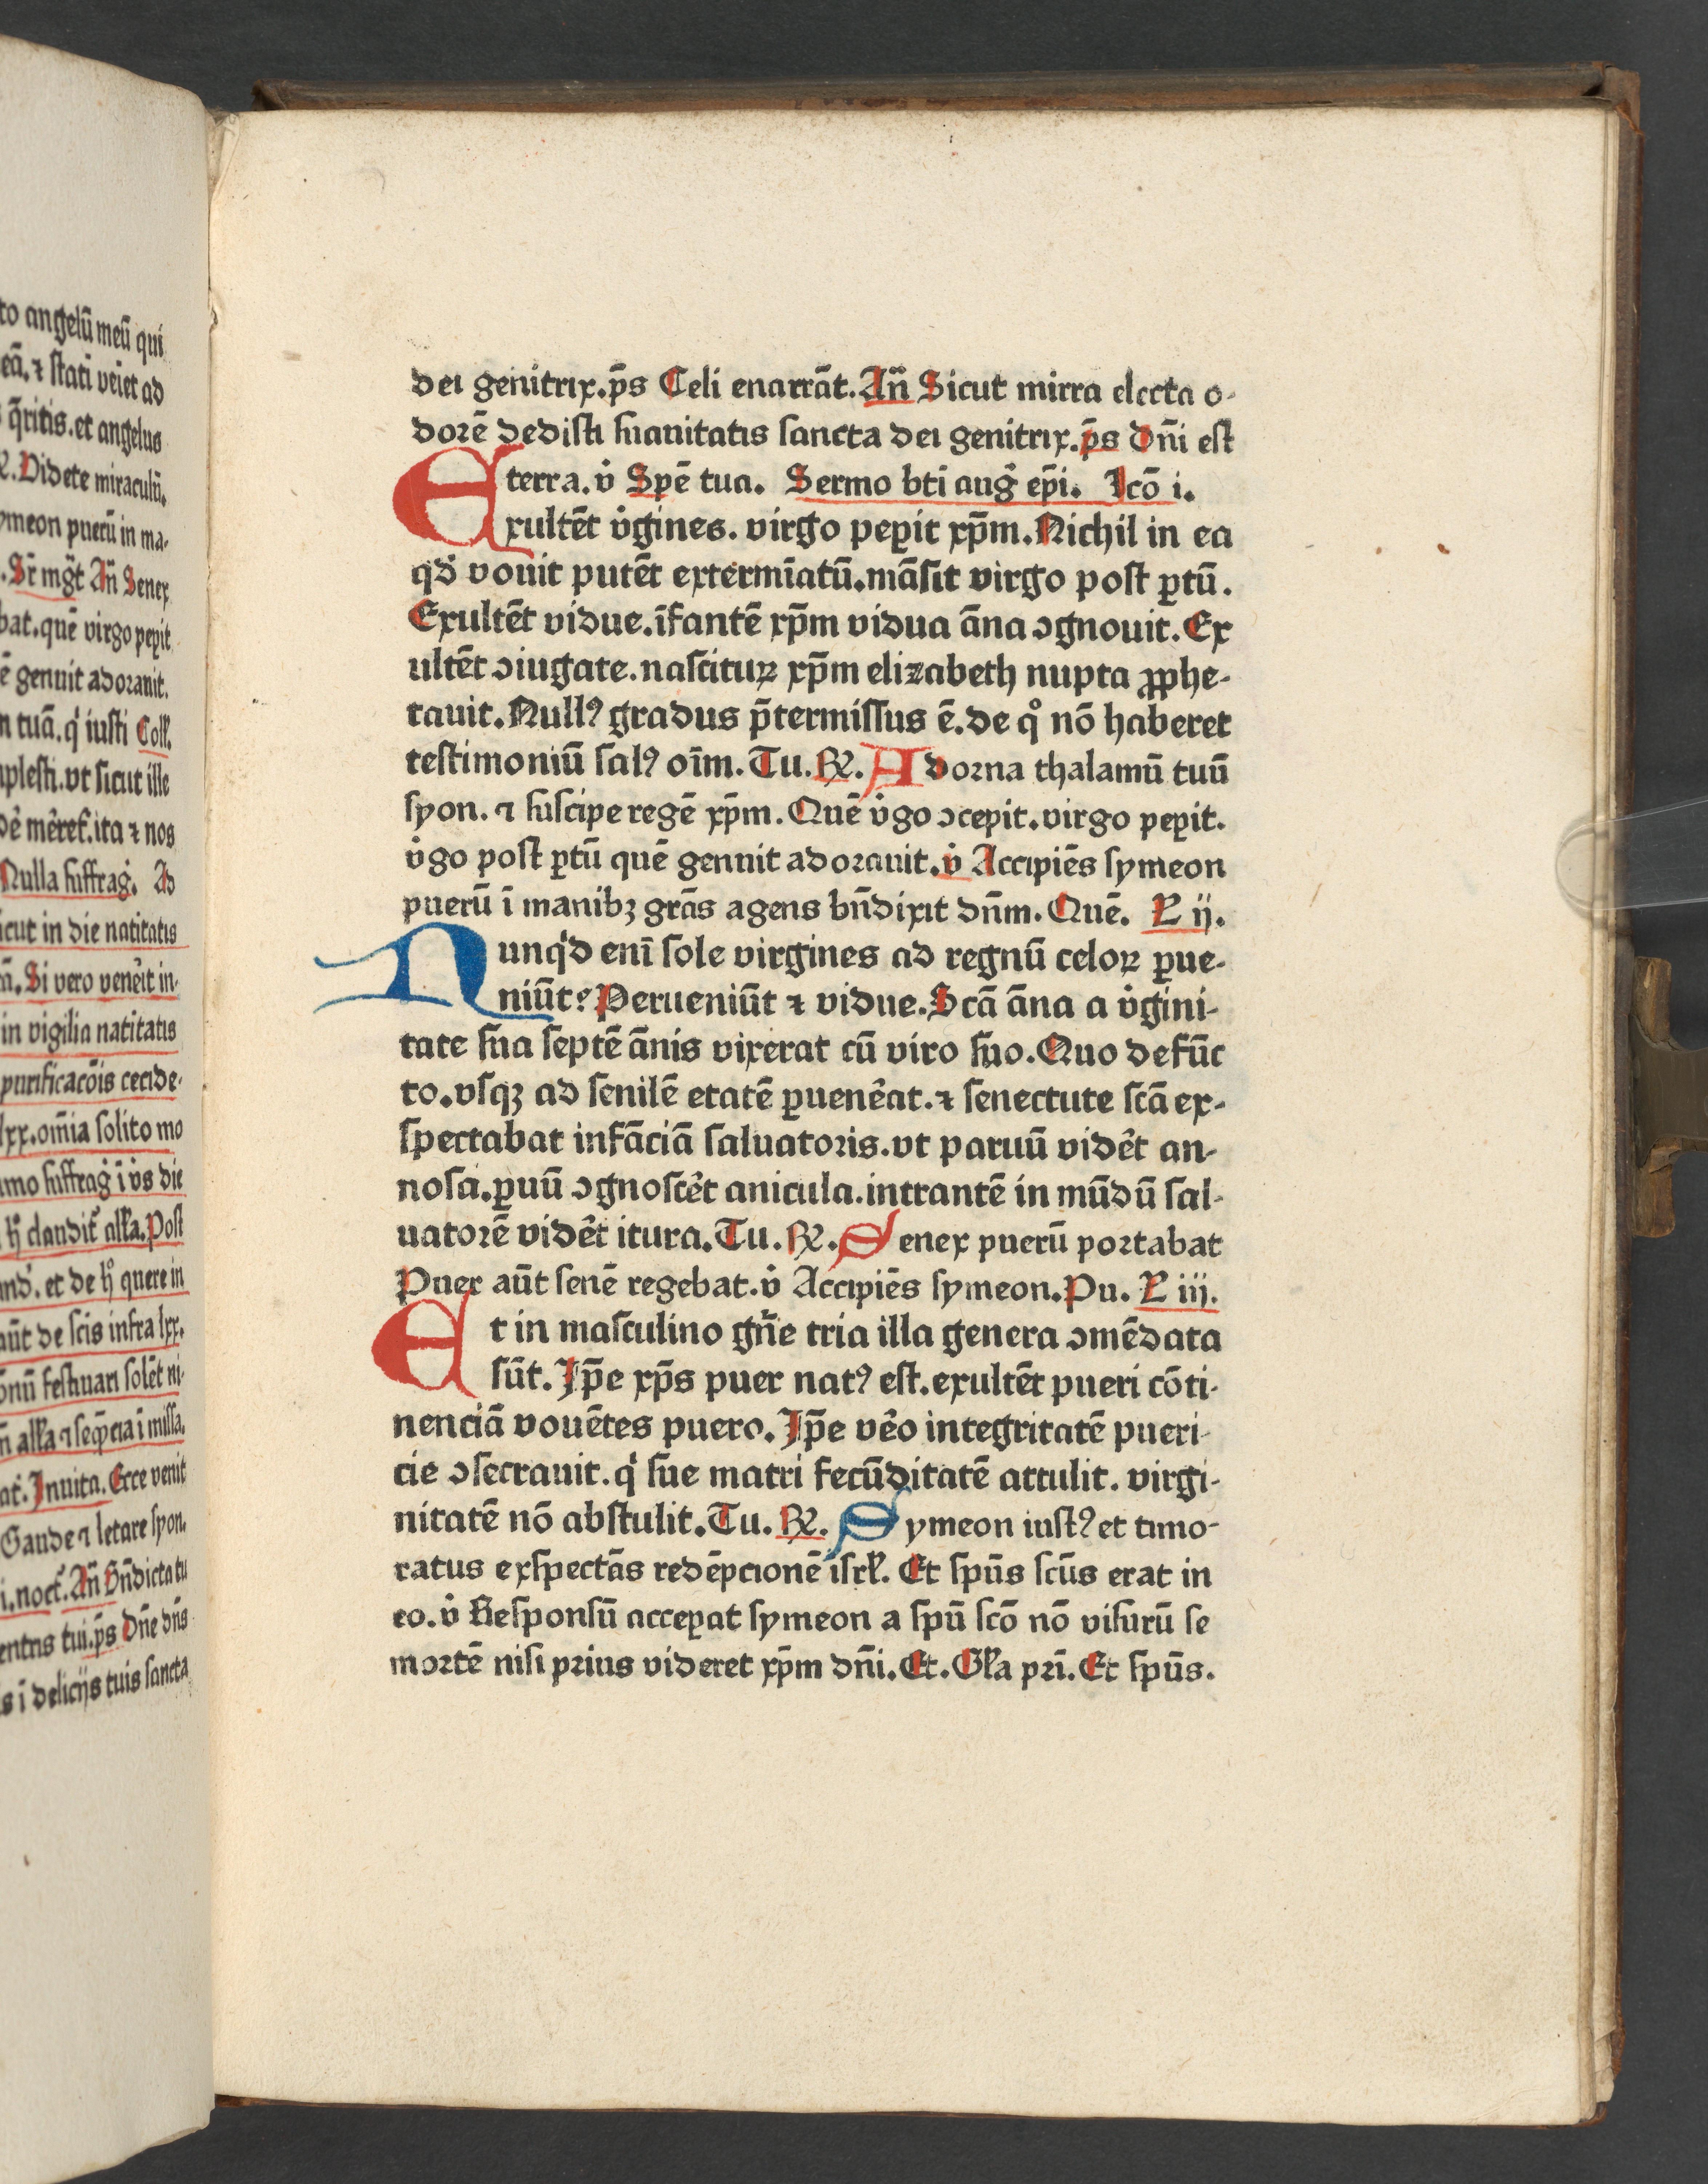 to angelū meū qui
eā. ⁊ stati veiet ad
q̄ritis. et angelus
Videte miraculū.
ymeon puerū in ma-
Sr̄ mgt̄ Añ Senex
bat. quē virgo peꝑit
ē genuit adorauit.
n tuā. q̇ iusti Coll.
mplesti. vt sicut ille
mēret. ita ⁊ nos
Nulla suffrag̉. Ad
icut in die natitatis
Si vero venẻit in-
in vigilia natitatis
purificacōis cecide-
lxx. om̄ia solito mo
imo suffrag̉ ī v̉s die
claudit̉ alľa. Post
et de quere in
aūt de scīs infra lxx.
festiuari solēt ni-
alľa ⁊ seq̄ncia ī missa.
at. Inuita. Ecce venit
Gaude ⁊ letare syon.
i. noct̉. Añ Bn̄dicta tu
entris tui. p̄s Dn̄e dn̄s
s ī delicijs tuis sancta
dei genitrix. p̄s Celi enarrāt. Añ Sicut mirra electa o-
dorē dedisti suauitatis sancta dei genitrix. p̄s Dn̄i est
terra. v̉ Spē tua. Sermo btī aug̉ ep̄i. Lcō i.
Exultēt v̉gines. virgo peꝑit xp̄m. Nichil in ea
qd̉ vouit putēt extermīatū. māsit virgo post ꝑtū.
Exultēt vidue. īfantē xp̄m vidua āna ↄgnouit. Ex
ultēt ↄiugate. nascituꝝ xp̄m elizabeth nupta ꝓphe-
tauit. Nullꝰ gradus p̄termissus ē. de qͦ nō haberet
testimoniū salꝰ oīm. Tu. ℞. Adorna thalamū tuū
syon. ⁊ suscipe regē xp̄m. Quē v̉go ↄcepit. virgo peꝑit.
v̉go post ꝑtū quē genuit adorauit. v̉ Accipiēs symeon
puerū ī manibꝫ grās agens bn̄dixit dn̄m. Quē. L ij.
Nunqd̉ enī sole virgines ad regnū celoꝝ ꝑue-
niūt? Perueniūt ⁊ vidue. Scā āna a v̉gini-
tate sua septē ānis vixerat cū viro suo. Quo defūc
to. vsqꝫ ad senilē etatē ꝑuenẻat. ⁊ senectute scā ex-
spectabat infāciā saluatoris. vt paruū vidẻt an-
nosa. ꝑuū ↄgnoscẻt anicula. intrantē in mūdū sal-
uatorē vidẻt itura. Tu. ℞. Senex puerū portabat
Puer aūt senē regebat. v̉ Accipiēs symeon. Pu. L iij.
Et in masculino gn̄e tria illa genera ↄmēdata
sūt. Ip̄e xp̄s puer natꝰ est. exultēt pueri cōti-
nenciā vouētes puero. Ip̄e vẻo integritatē pueri-
cie ↄsecrauit. q̇ sue matri fecūditatē attulit. virgi-
nitatē nō abstulit. Tu. ℞. Symeon iustꝰ et timo-
ratus exspectās redēpcionē isrľ. Et spūs scūs erat in
eo. v̉ Responsū acceꝑat symeon a spū scō nō visurū se
mortē nisi prius videret xp̄m dn̄i. Et. Glʼa pr̄i. Et spūs.